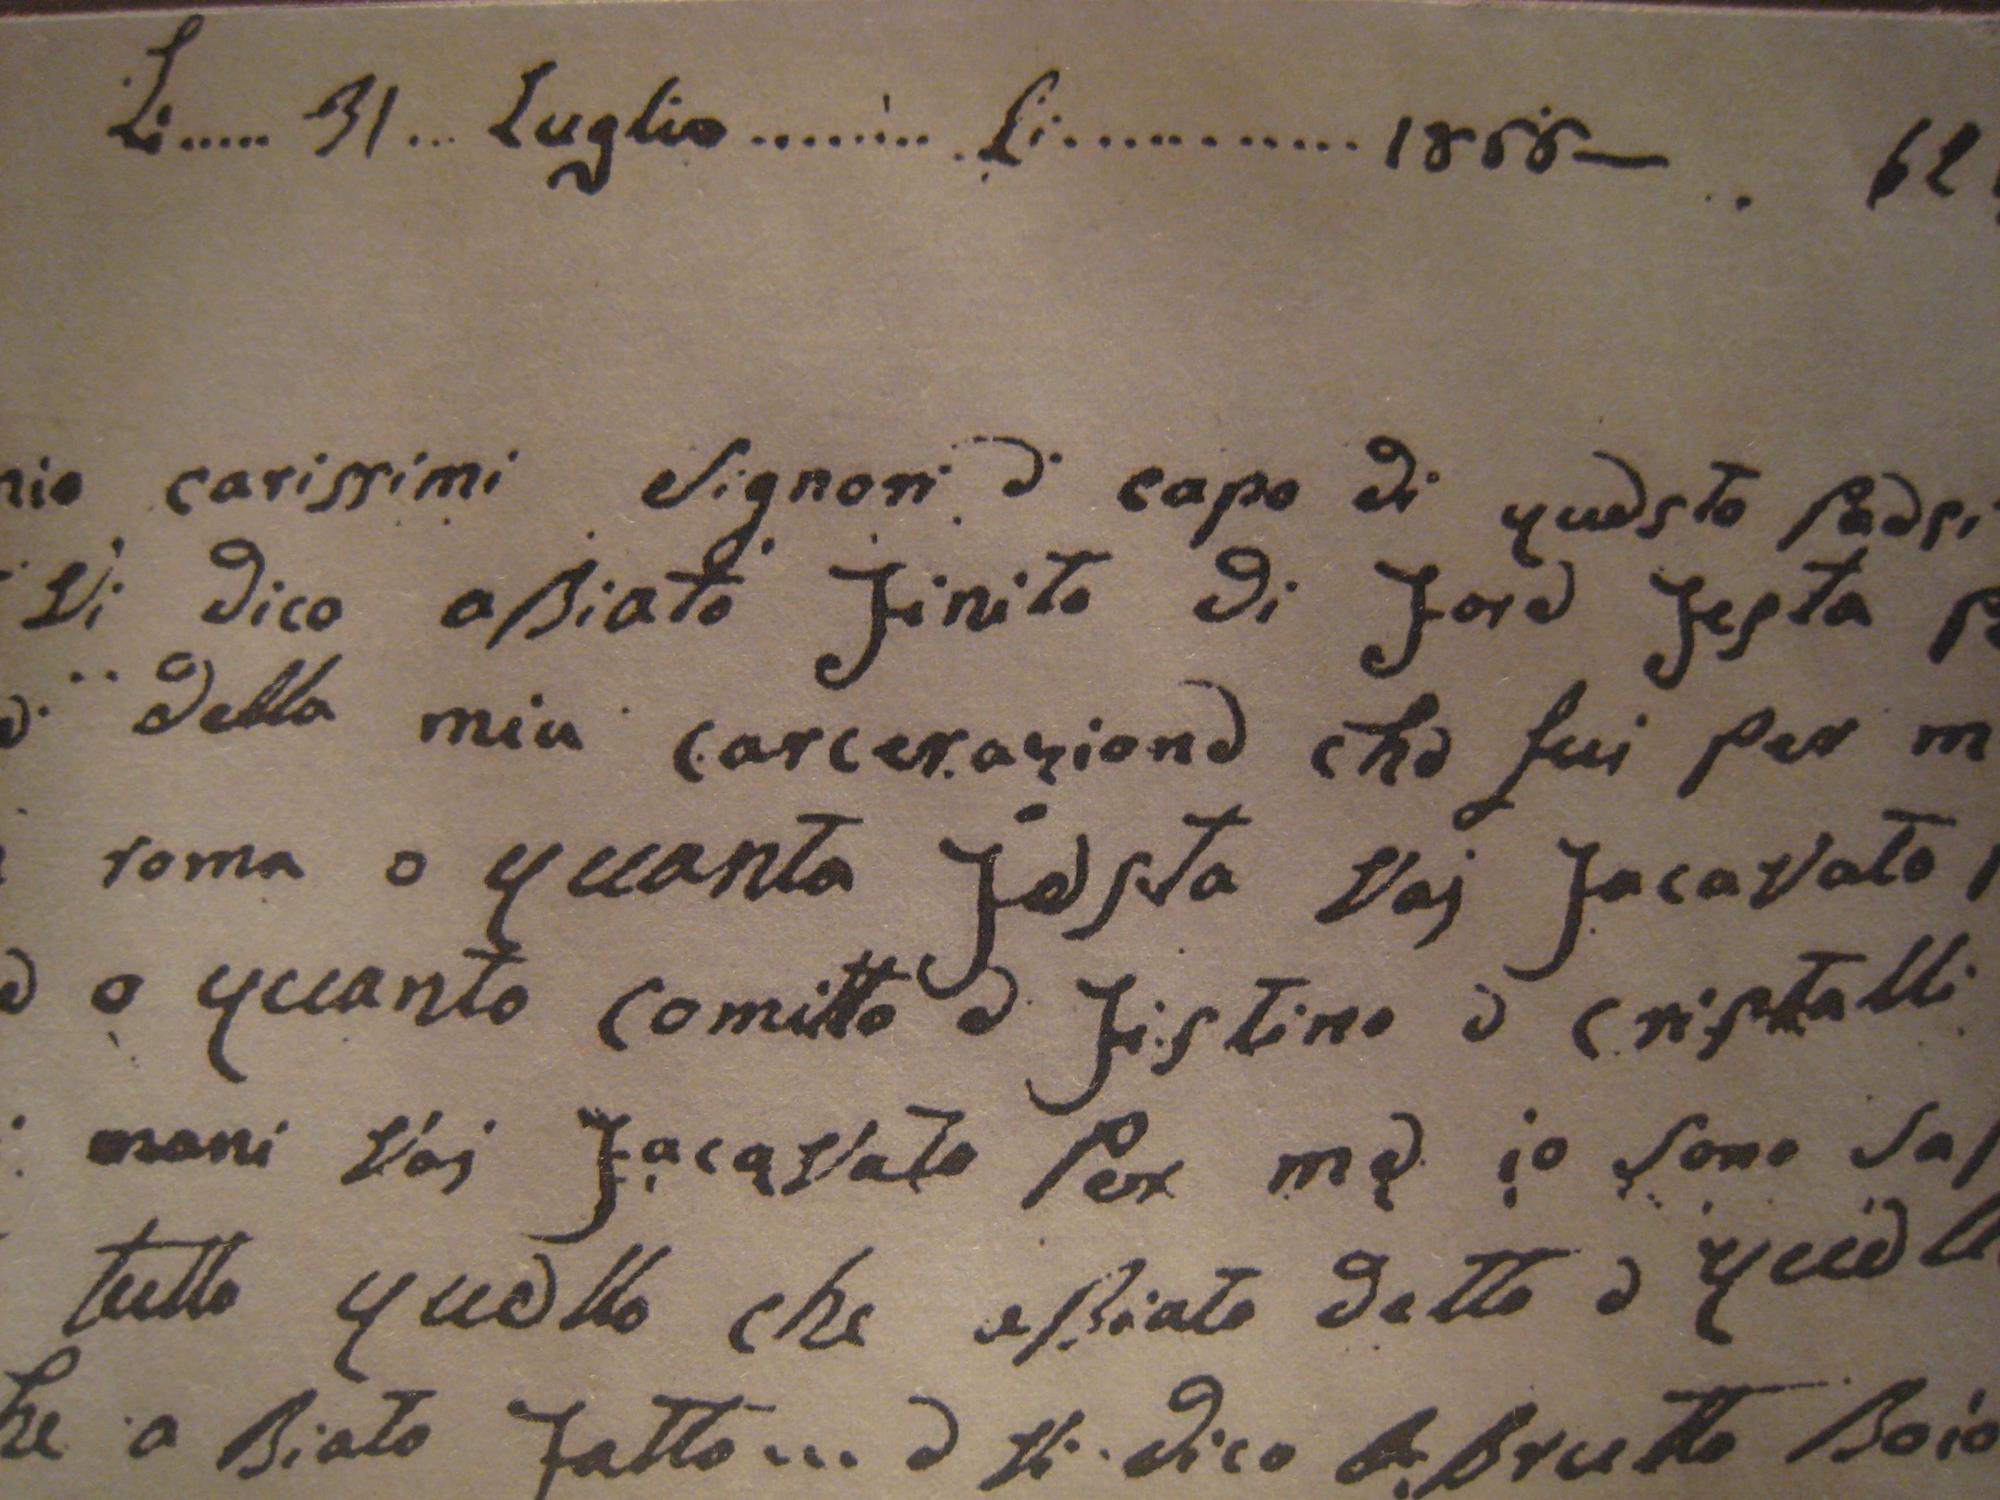 Li..... 31 ... Luglio .......... Li............. 1866— 62
mio carissimi Signori e capo di questo Paesi
Vi dico aBiato finito di fore festa
e della mia carcerazione che fui per m
roma o quanta festa Vaj facaVato
e o quanto comitto e fistino e cristalli
mani Vaj facaVato Per me io sono sa
tutto quello che aBiato detto e quell
he a Biato fatto... e Vi dico Brutto Boio